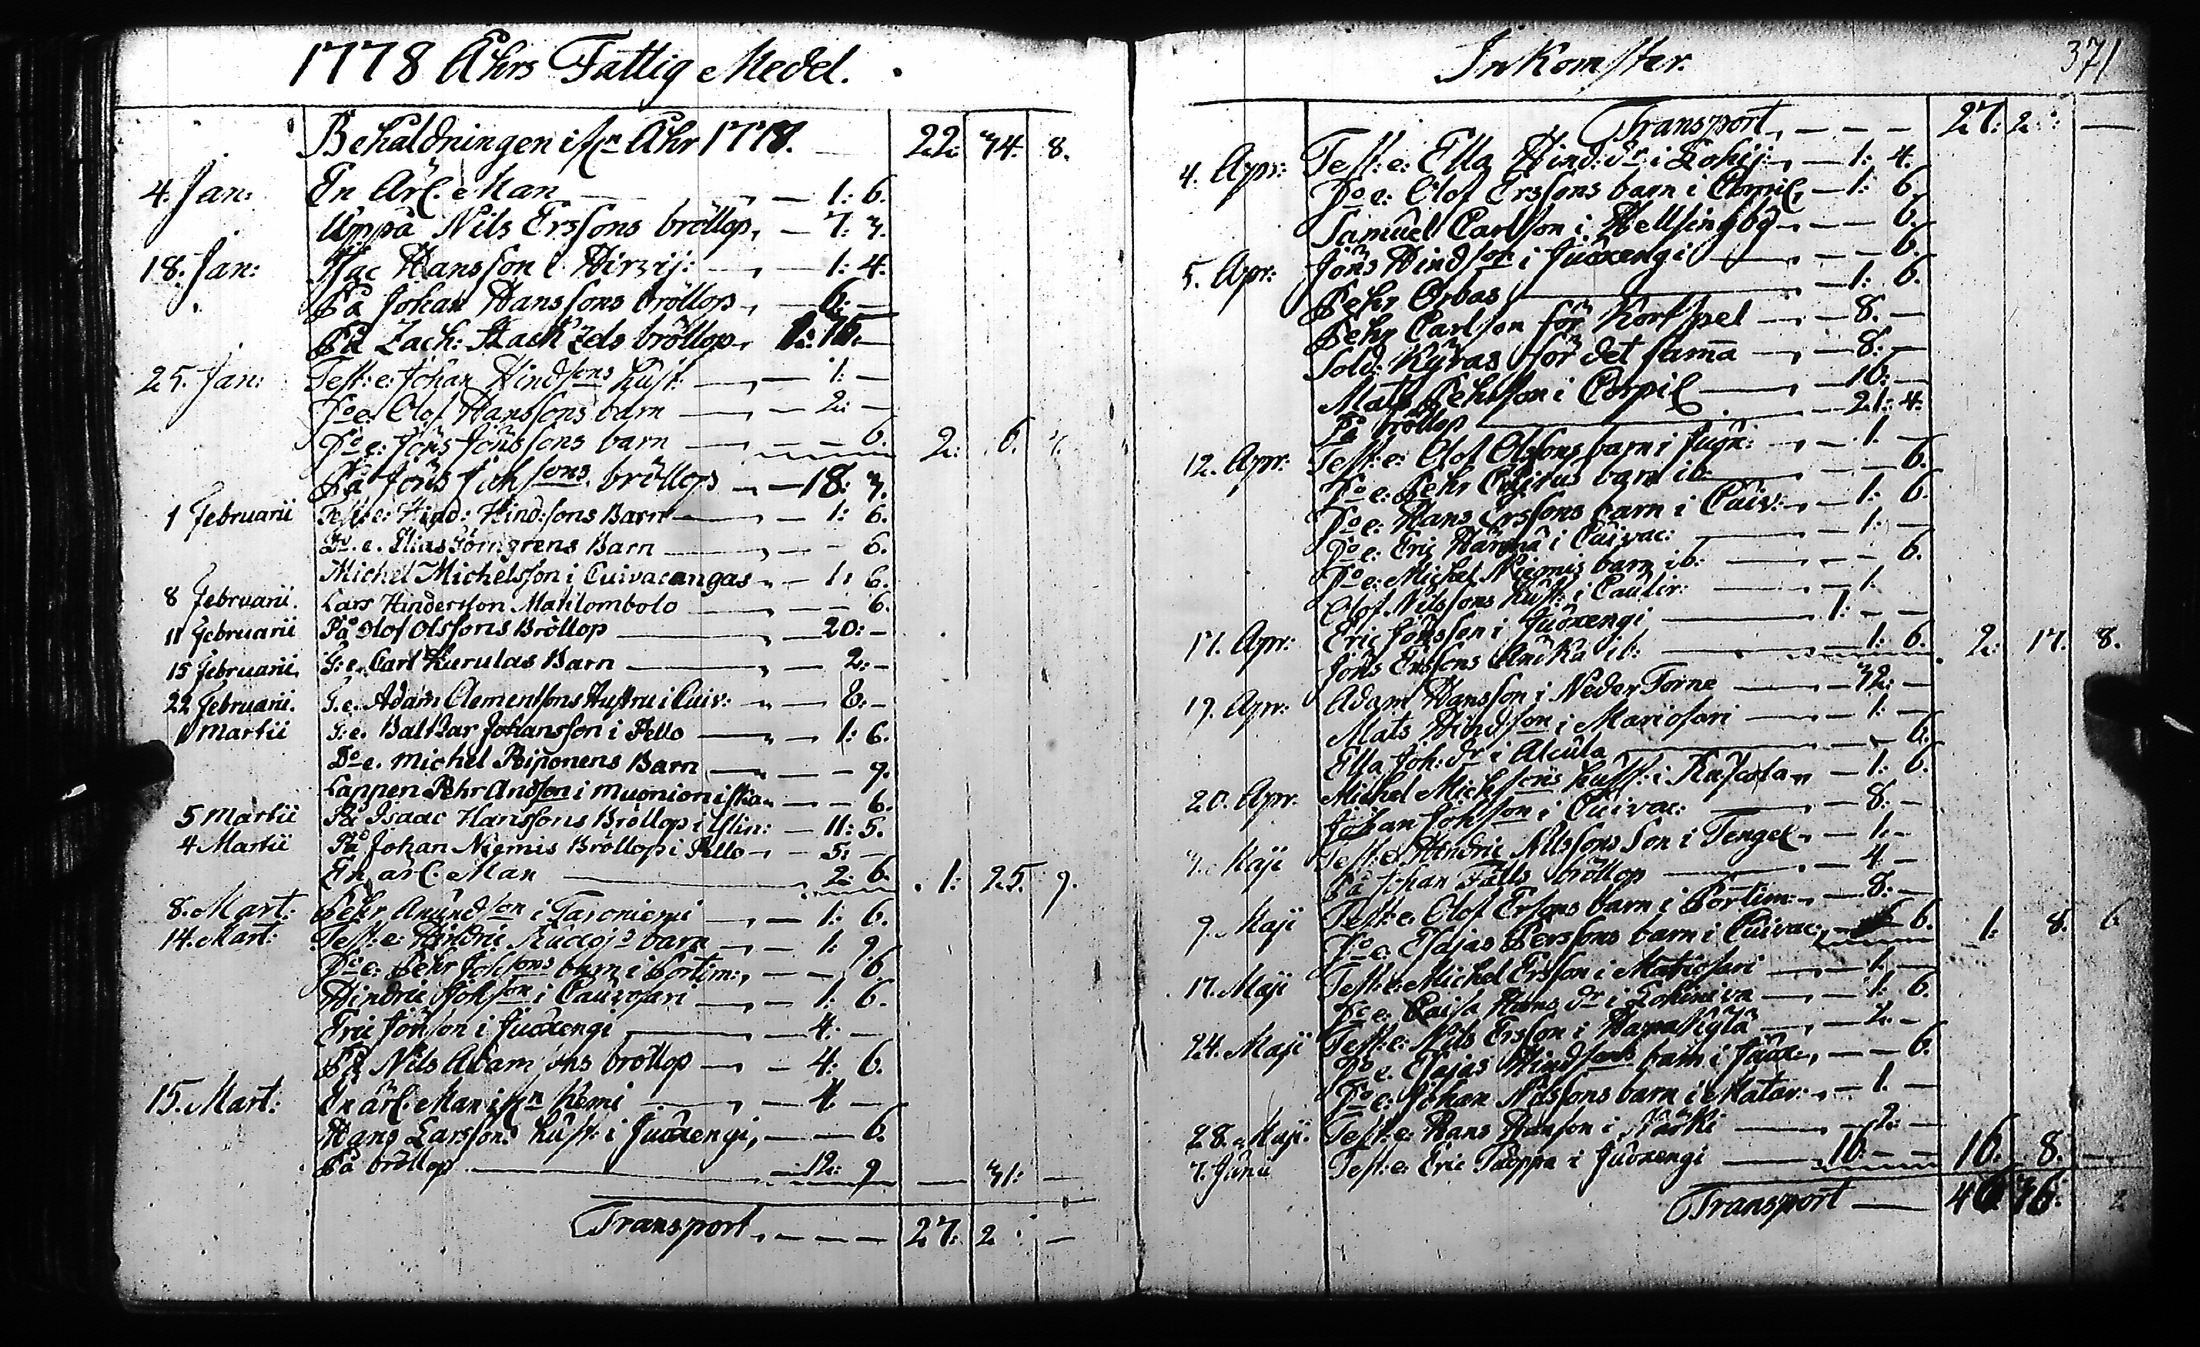 1778 Åhrs Fattig Medel.
Behåldningen ifrn Åhr 1777. 22: 34. 8.
4. Jan: En Ärl. Man 1: 6.
Uppå Nils Ersfons bröllop, 7: 3.
18. Jan: Isac Hansson i Hirvij: 1: 4.
På Johan Hanssons bröllop 6: —
På Zach: Hackzels bröllop
25. Jan: Test: e: Johan Hindsons hust: 1: —
Do e: Olof Hanssons barn 2: —
Do e: Jöns Jönssons barn 6. 2: 6.
På Jöns Johsons bröllop 18: 3.
1 Februarii Test: e: Hind: Hindssons Barn 1: 6.
Do. e. Elias Törngrens Barn 6.
Michel Michelsson i Cuivacangas 1: 6.
8 Februarii. Lars Hindersson Matilombolo 6.
11 Februarii På Olof Olssons Bröllop 20: —
15 Februarii. T: e. Carl Kurulas Barn 2: —
22 Februarii. T. e. Adam Clementsons Hustru i Cuiv: 8: —
1 Martii T: e. Baltzar Johansson i Pello 1: 6.
Do e. Michel Piiponens Barn 9.
Lappen Pehr Andson i Muonioniska 6.
5 Martii På Isaac Hanssons Bröllop i 11: 5.
4 Martii På Johan Niemis Bröllop i Pello 5: —
En ärl. Man 2: 6. 1: 25. 9.
8. Mart: Pehr Amundson i Taroniemi 1: 6.
14. Mart: Test: e: Hindric barn 1: 9
Do e: Pehr Johsons barn i Portim: 6
Hindric Johson i Cauvosari 1: 6.
Eric Jönson i Juoxengi 4: —
På Nils Adamsons bröllop 4: 6.
15. Mart: En ärl. Man ifrn Kemi 4. —
Hans Larssons hust: i Juoxengi, 6.
På bröllop 12: 9 — 31: —
Transport 27: 2 : —
Inkomster. 371
Transport 27: 2: —
4. Apr: Test: e: Ella Hind: dr i Lohij: 1: 4.
Do e: Olof Erssons barn i Corpil. 1: 6.
Samuel Carlsson i Hellsingbg 6.
5. Apr: Jöns Hindson i Juoxengi 6.
Pehr Orbas 1: 6.
Pehr Carlson för Kortspel 8. —
Sold: Kyras för det samma 8: —
Mats Pehrsson i Corpil 10: —
På bröllop 21: 4.
12. Apr: Test: e: Olof Olssons barn i 1. —
Do e: Pehr barn ib: 6.
Do e: Hans Erssons barn i Cuiv: 1: 6.
Do e: Eric i Cuivac: 1: —
Do e: Michel Niemis barn ib: 6.
Olof Nilssons hust: i Caulir: 1.
17. Apr: Eric Jönsson i Juoxengi 1: —
Jöns Erssons Änka ib: 1: 6. 2: 17. 8.
19. Apr: Adam Hansson i Neder Torne 32: —
Mats Hindson i Mariosari 1: —
Ella Joh: dr i Alcula 6.
20. Apr: Michel Michsons hust: i 1: 6.
Johan Johson i Cuivac: 8: —
3. Maji Test: e: Hindric Nilssons Son i Tengel. 1: —
På Johan Fälts bröllop 4 —
9. Maji Test: e: Olof Ersons barn i Portim: 8: —
Do e. Esajas Perssons barn i Cuivac: 6. 1: 8. 6
17. Maji Test: e: Michel Ersson i 1. —
Do e: Caisa Hans dr i 1: 6.
24. Maji Test: e: Nils Ersson i Hapakylä 2. —
Do e. Esajas Hindsons barn i Juox: 6.
Do e: Johan Nilssons barn i Matar: 1. —
28. Maji. Test: e: Hans Hanson i 2: —
7. Junii Test: e: Eric i Juoxengi 16: — 16: 8. —
Transport